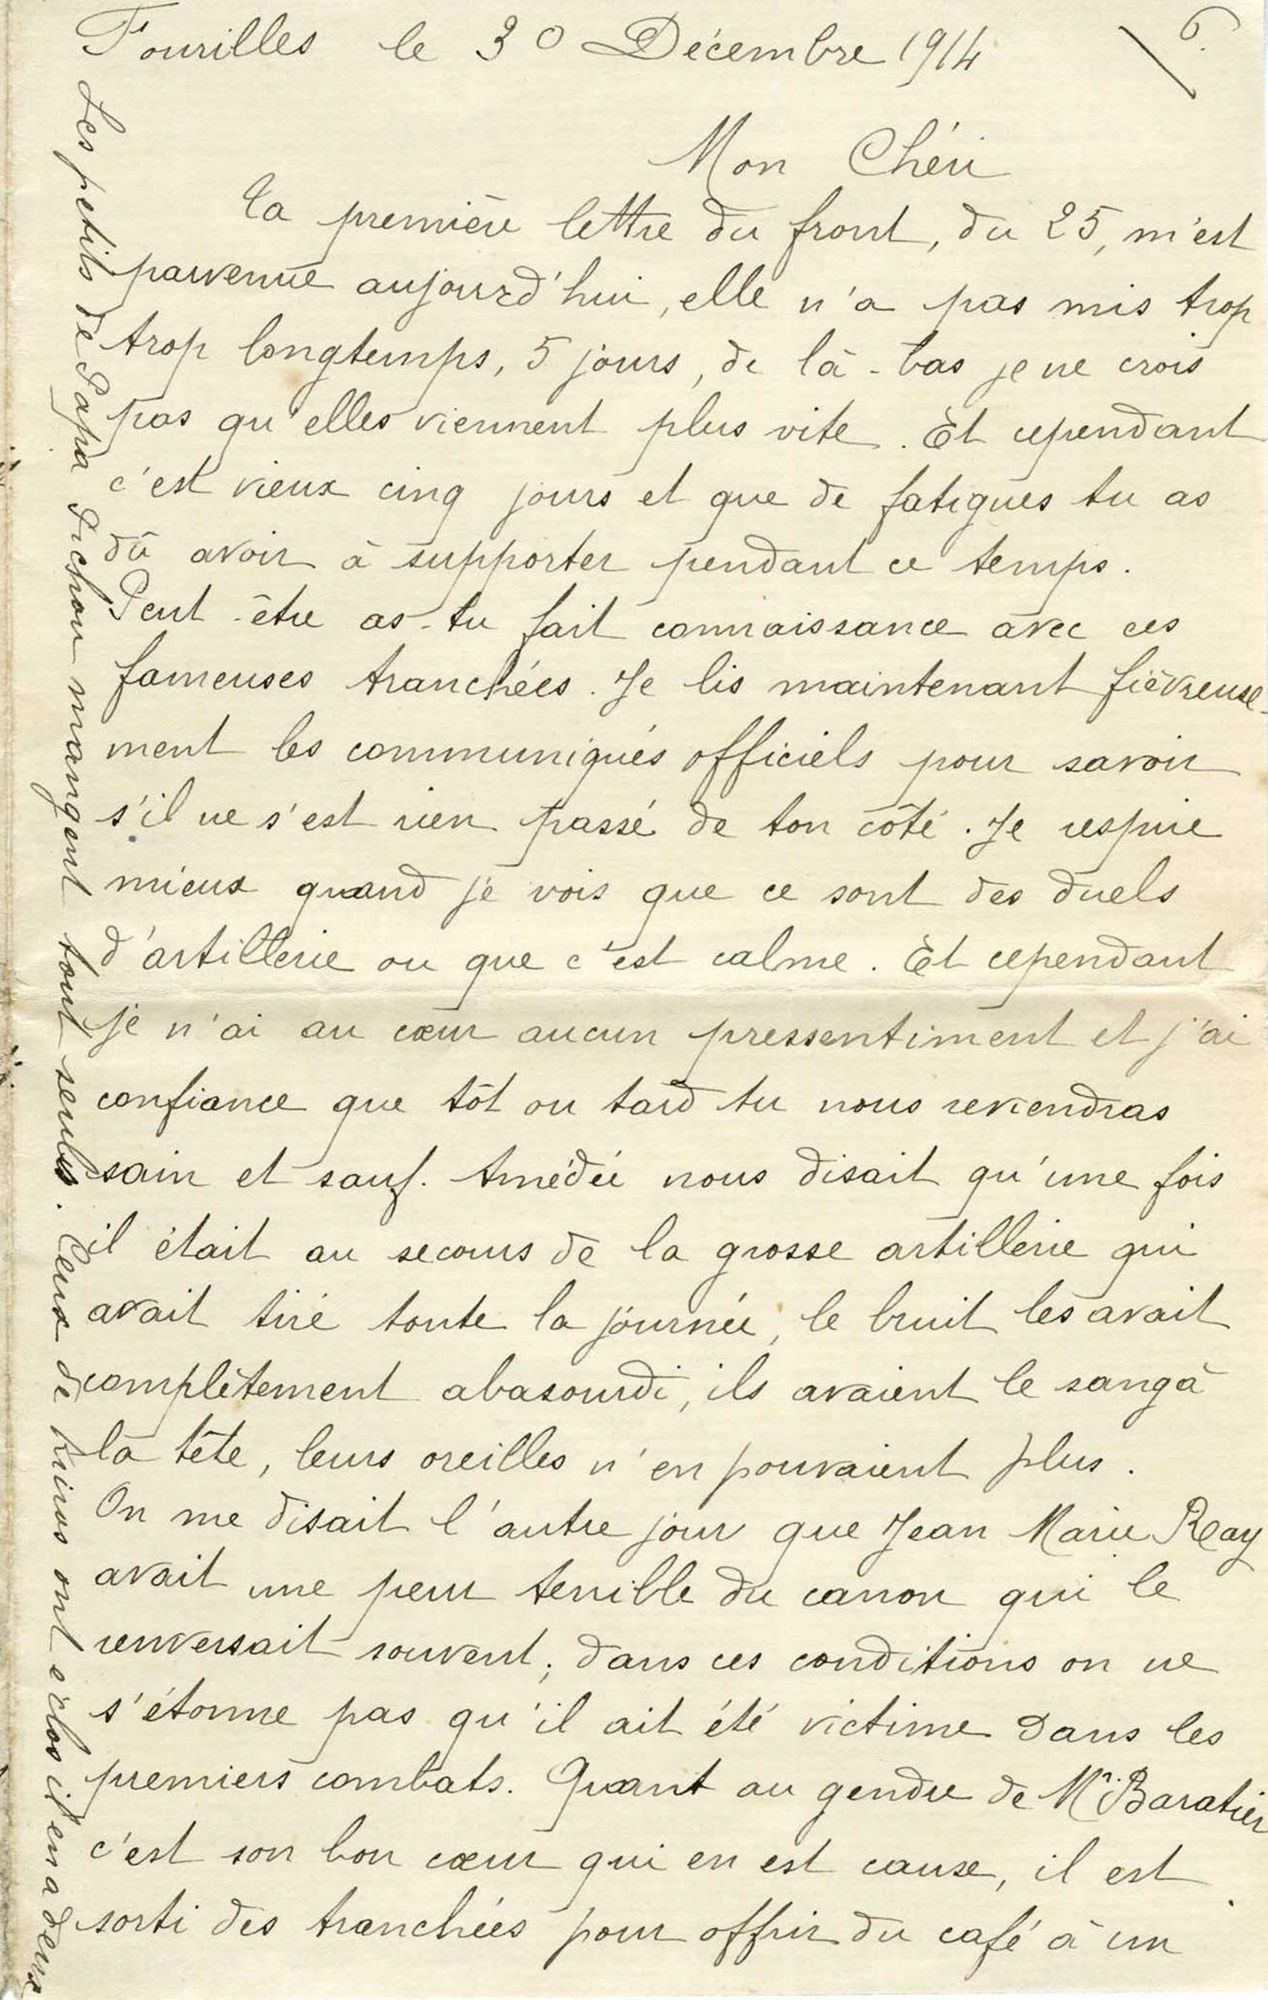 Fourilles le 30 Décembre 1914
6.
Mon Chéri
Ta première lettre du front, du 25, m'est
parvenue aujourd'hui, elle n'a pas mis trop
trop longtemps, 5 jours, de là-bas je ne crois
pas qu'elles viennent plus vite. Et cependant
c'est vieux cinq jours et que de fatigues tu as
dû avoir à supporter pendant ce temps.
Peut-être as-tu fait connaissance avec ces
fameuses tranchées. Je lis maintenant fiévreuse-
ment les communiqués officiels pour savoir
s'il ne s'est rien passé de ton côté. Je respire
mieux quand je vois que ce sont des duels
d'artillerie ou que c'est calme. Et cependant
je n'ai au cœur aucun pressentiment et j'ai
confiance que tôt ou tard tu nous reviendras
sain et sauf. Amédée nous disait qu'une fois
il était au secours de la grosse artillerie qui
avait tiré toute la journée, le bruit les avait
complètement abasourdi, ils avaient le sang à
la tête, leurs oreilles n'en pouvaient plus.
On me disait l'autre jour que Jean Marie Ray
avait une peur terrible du canon qui le
renversait souvent; dans ces conditions on ne
s'étonne pas qu'il ait été victime dans les
premiers combats. Quant au gendre de Mr. Baratier
c'est son bon cœur qui en est cause, il est
sorti des tranchées pour offrir du café à un
Les petits de Papa Pichon mangent tout seuls. Ceux de ont éclos il en a deux